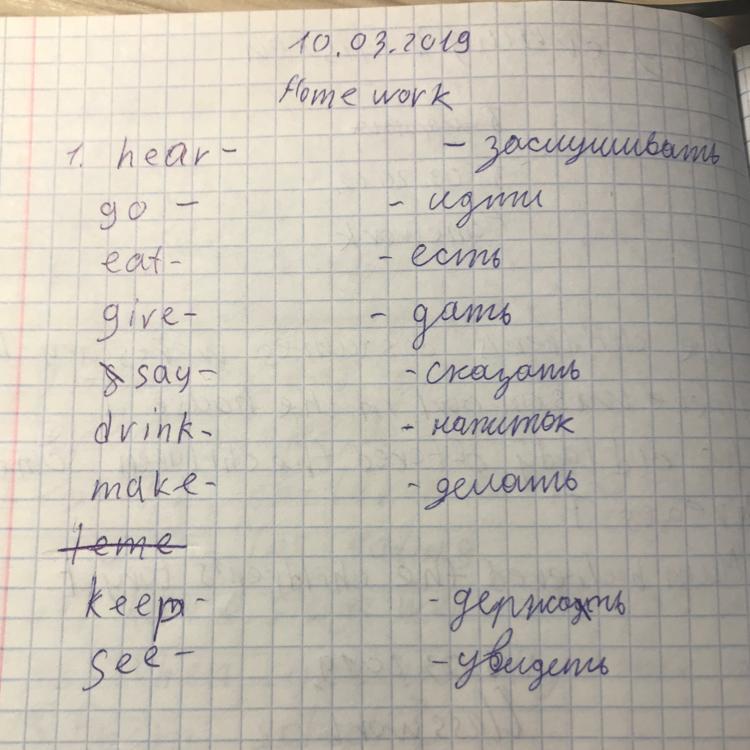 10.03.2019
Home work
1. hear - - заслушивать
go - - идти
eat - - есть
give - - дать
say - - сказать
drink - - напиток
make - - делать
teme
keep - - держать
see - - увидеть